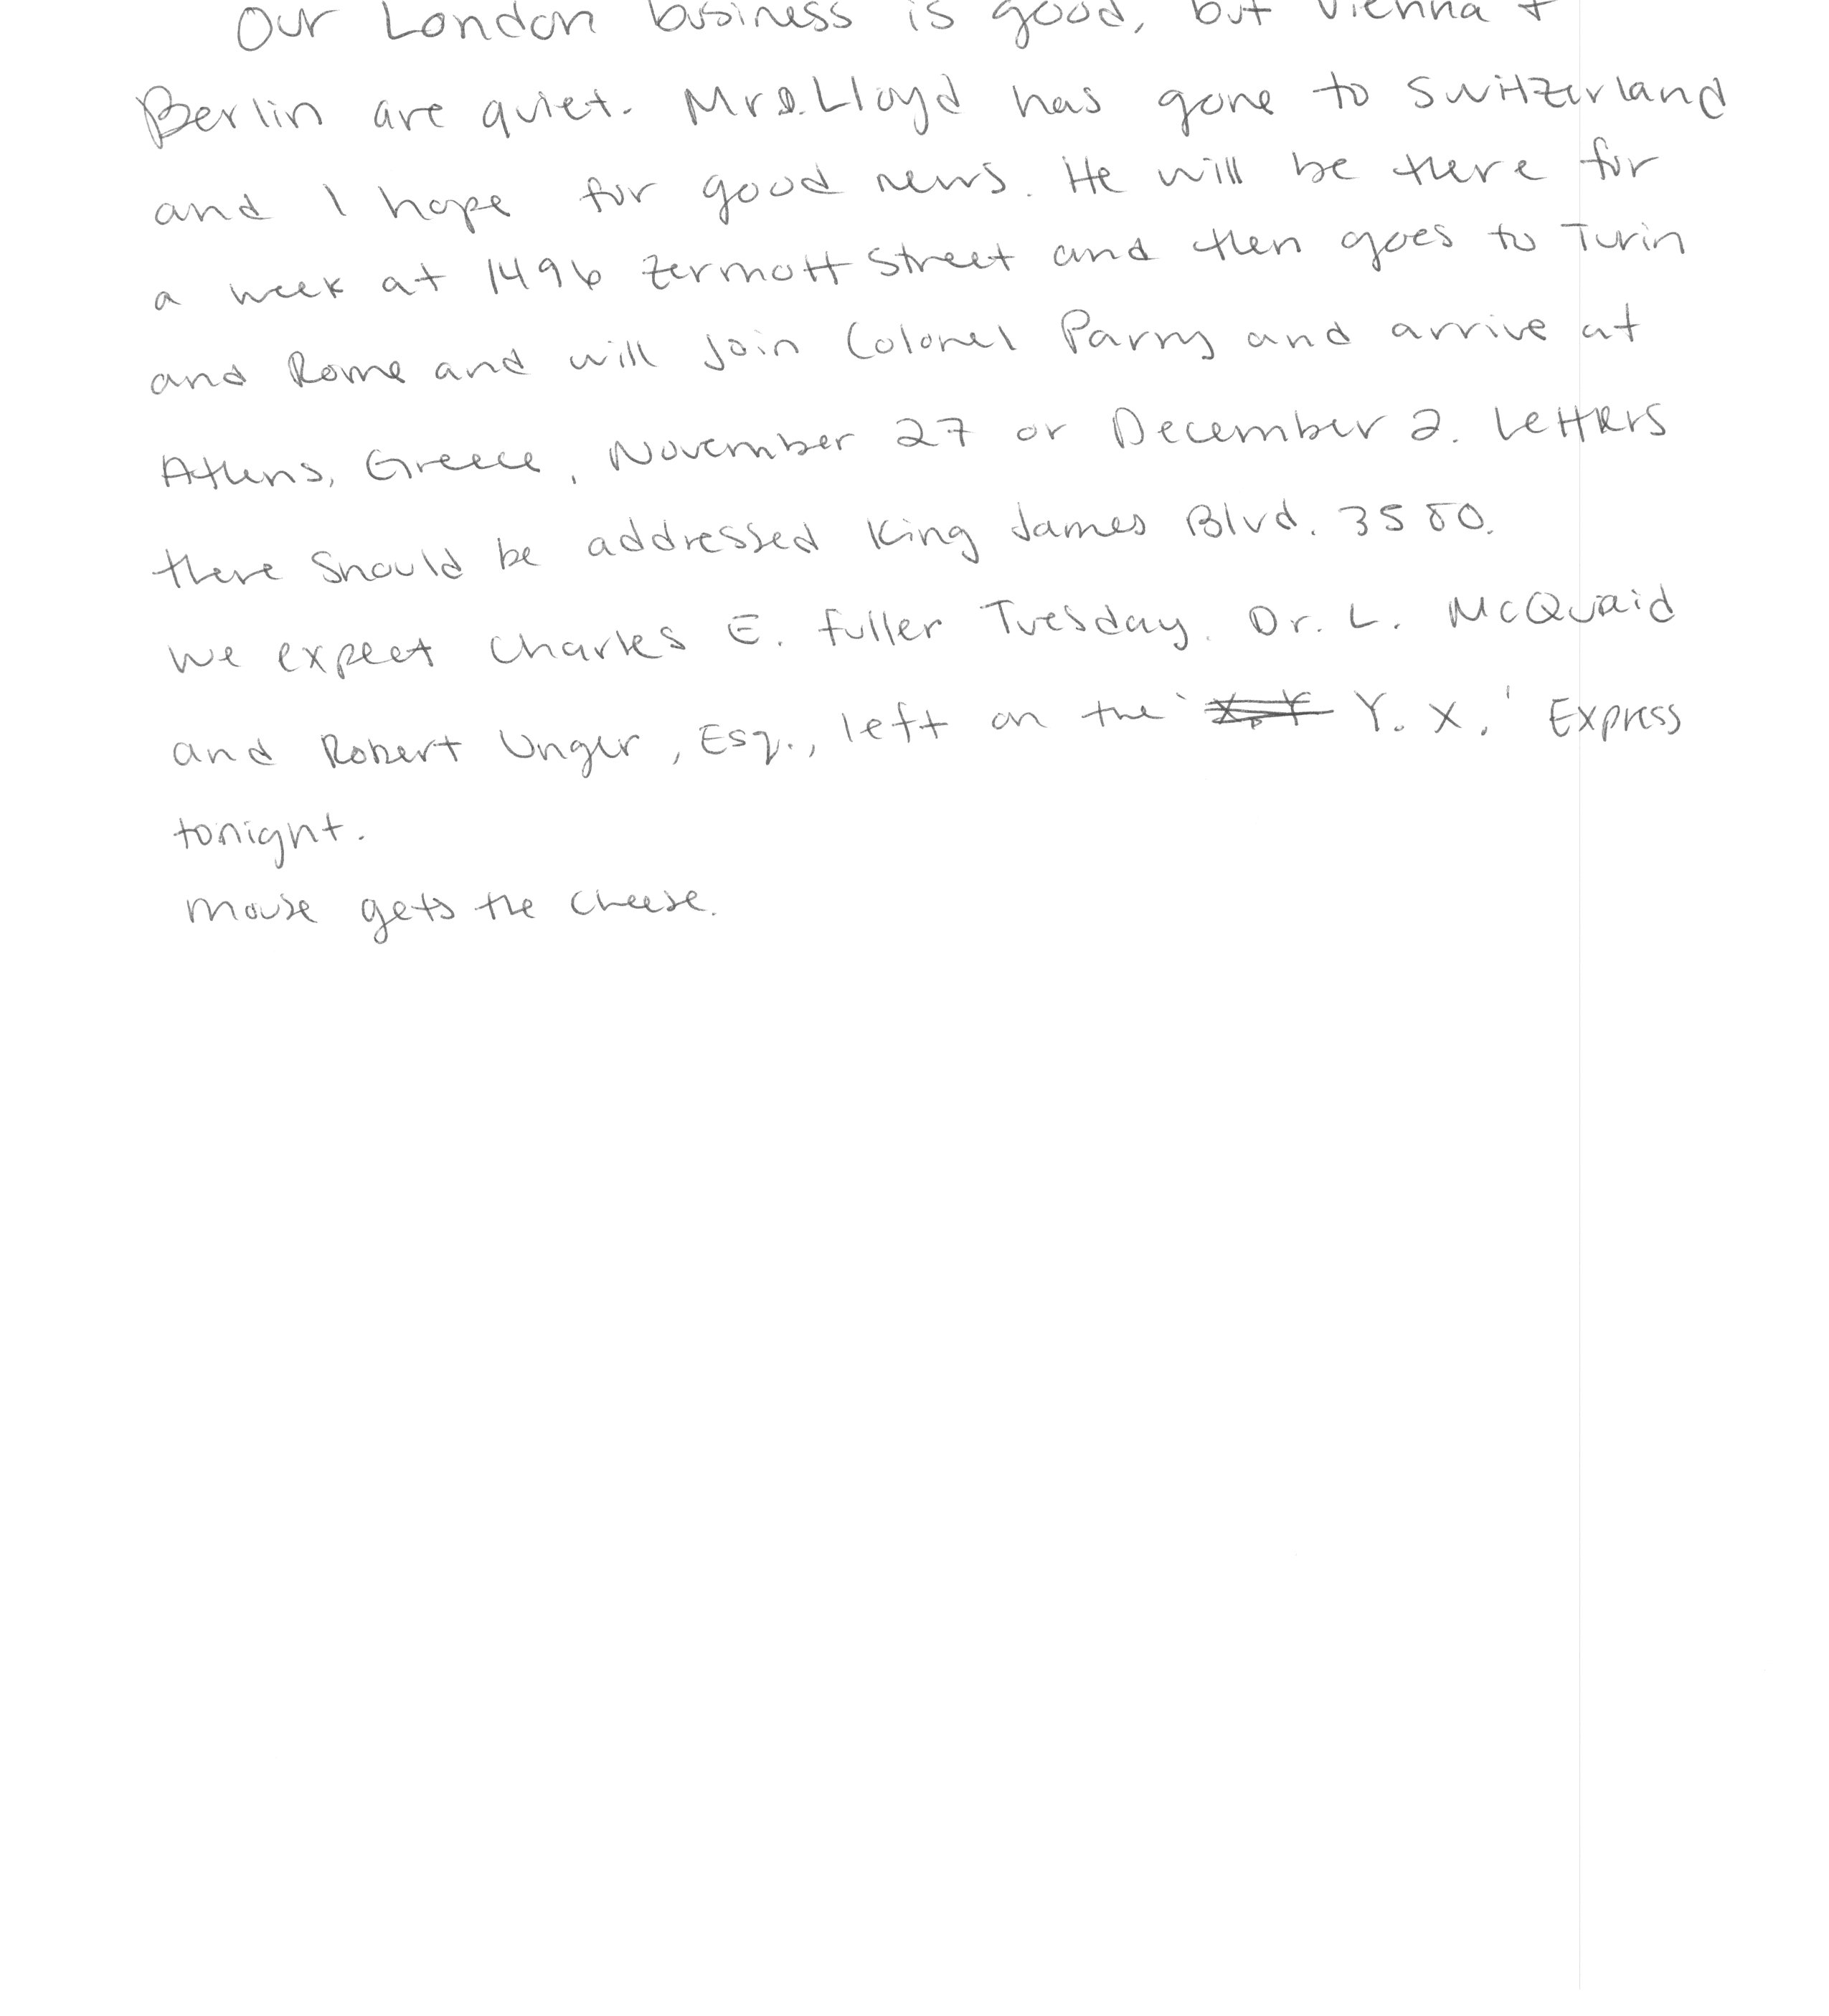 Our London business is good, but Vienna +
Berlin are quiet. Mr. D. Lloyd has gone to Switzerland
and I hope for good news. He will be there for
a week at 1496 Zermott Street and then goes to Turin
and Rome and will join Colonel Parry and arrive at
Athens, Greece, November 27 or December 2. Letters
there should be addressed King James Blvd. 3580.
We expect Charles E. Fuller Tuesday. Dr. L. McQuaid
and Robert Unger, Esq., left on the ' Y. X.' Express
tonight.
Mouse gets the cheese.